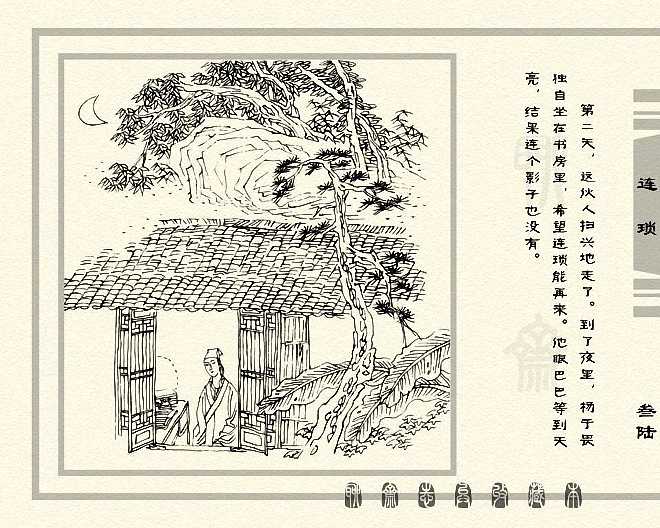 第二天，这伙人扫兴地走了。到了夜里，杨于畏
独自坐在书房里，希望连琐能再来。他眼巴巴等到天
亮，结果连个影子也没有。
连琐
叁陆
聊斋志异收藏本